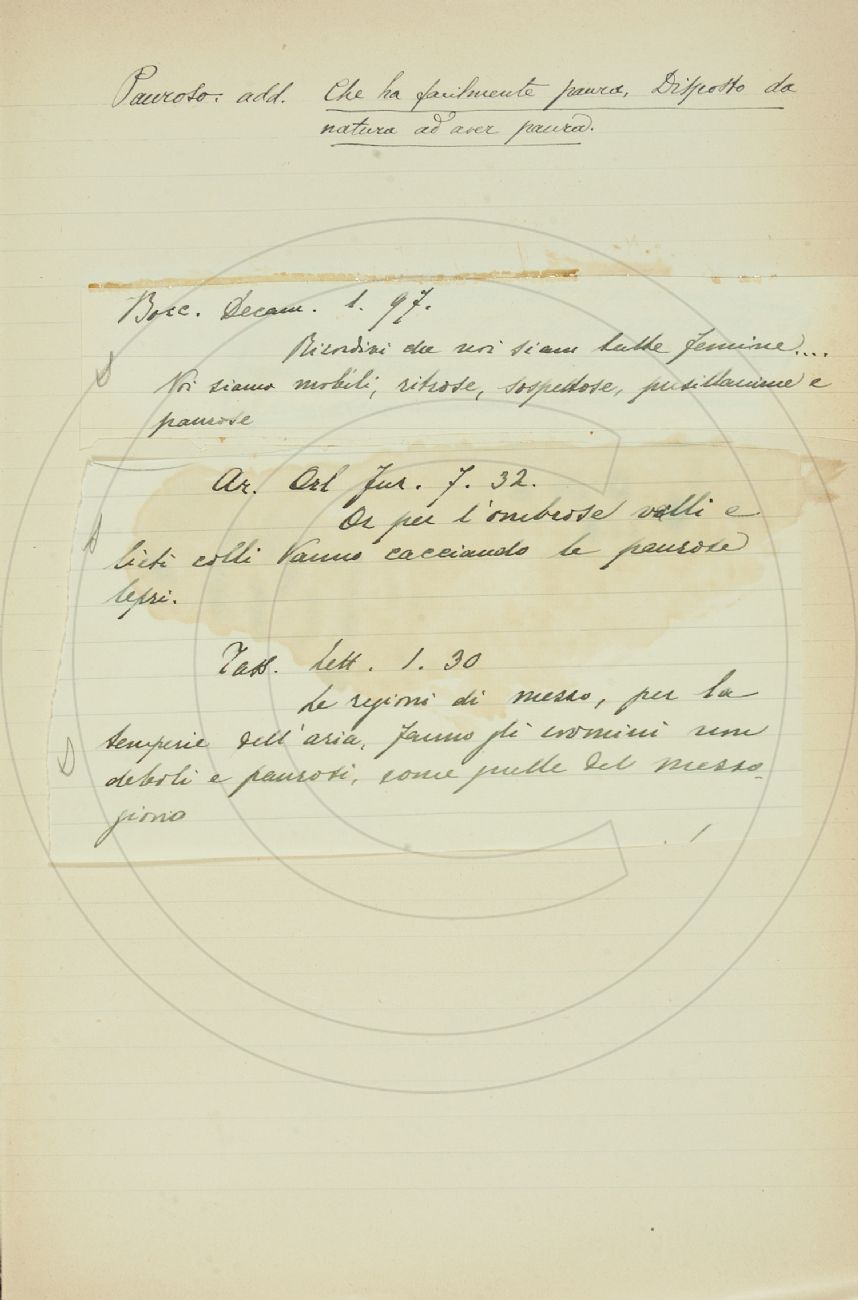 Pauroso. add. Che ha facilmente paura, Disposto da
natura ad aver paura.
Bocc. Decam. 1. 97.
Ricordivi che noi siam tutte femine...
Noi siamo mobili, ritrose, sospettose, pusillanime e
paurose
Ar. Orl Fur. 7. 32.
Or per l'ombrose valli e
lieti colli Vanno cacciando le paurose
lepri.
Tass. Lett. 1. 30
Le regioni di mezzo, per la
temperie dell'aria, fanno gli uomini non
deboli e paurosi, come quelle del mezzo-
giorno